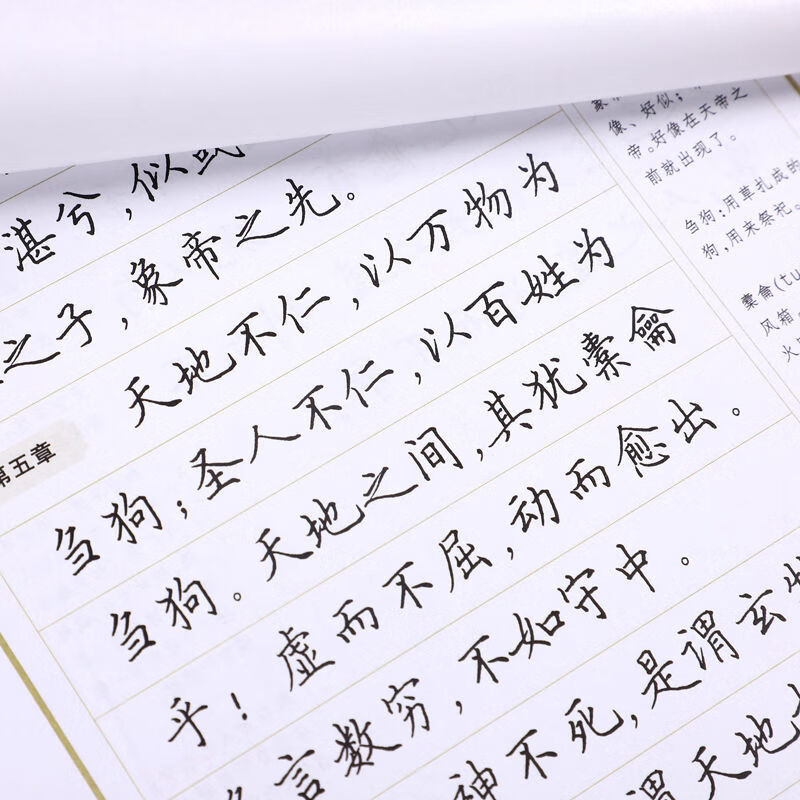 湛兮，似或
之子，象帝之先。
天地不仁，以万物为
第五章
刍狗；圣人不仁，以百姓为
刍狗。天地之间，其犹橐龠
乎！虚而不屈，动而愈出。
言数穷，不如守中。
神不死，是谓玄
谓天地
像、好似；
帝。好像在天帝之
前就出现了。
刍狗：用草扎成的
狗，用来祭祀。
橐龠(tu
风箱
火